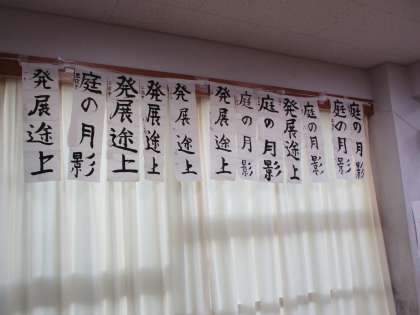 発展途上
庭の月影
発展途上
発展途上
発展途上
発展途上
庭の月影
庭の月影
発展途上
庭の月影
庭の月影
庭の月影